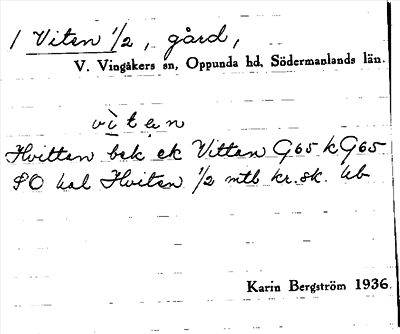 1 Viten 1/2, gård,
V. Vingåkers sn, Oppunda hd, Södermanlands län.
vìtẹn
Hvitten bek ek Vitten G65 k G65
PO kal Hviten 1/2 mtl kr. sk. Ub
Karin Bergström 1936.